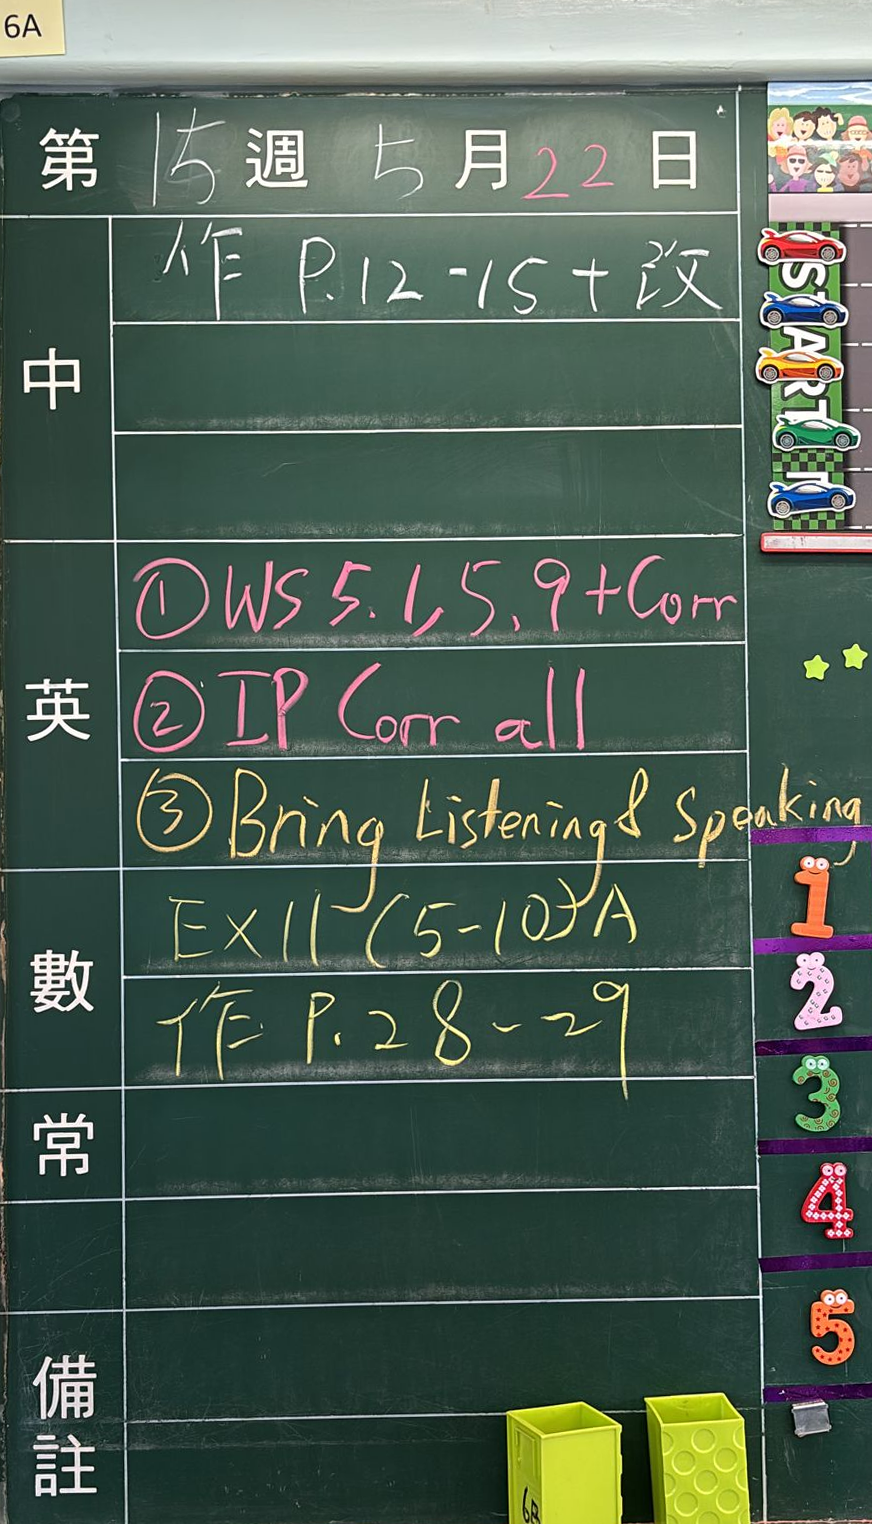 6A
第 15 週 5 月 22 日
中
作 P.12-15+改
英
①WS 5.1,5.9+Corr
②IP Corr all
③Bring Listening & Speaking
數
EX11 (5-10)A
作 P.28-29
常
備註
START
1
2
3
4
5
6B